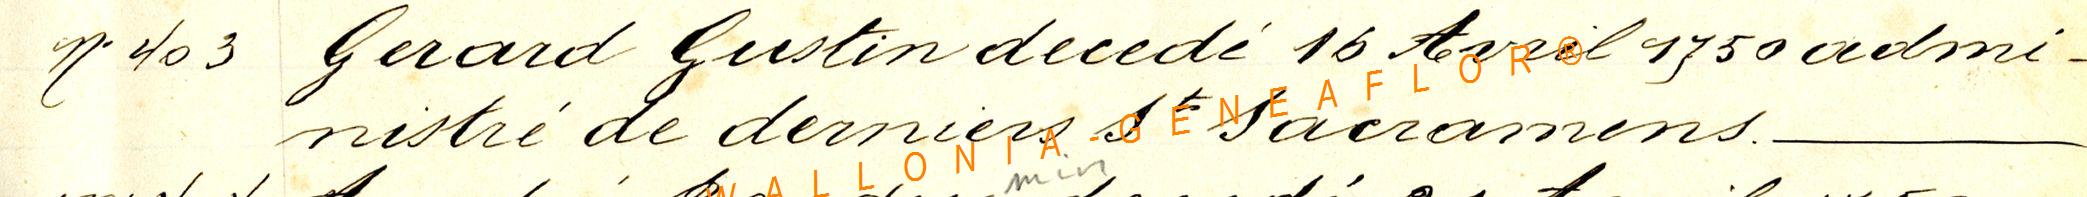 N° 403 Gerard Gustin decedé 16 Avril 1750 admi-
nistré de derniers St Sacramens.
WALLONIA-GENEAFLOR®
min